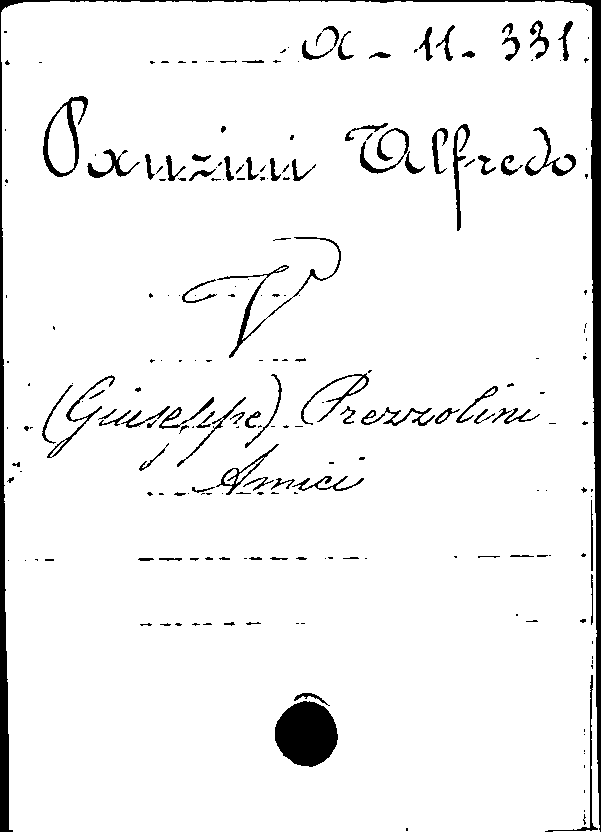 A - 11 - 331
Panzini Alfredo
V
(Giuseppe) Prezzolini
Amici